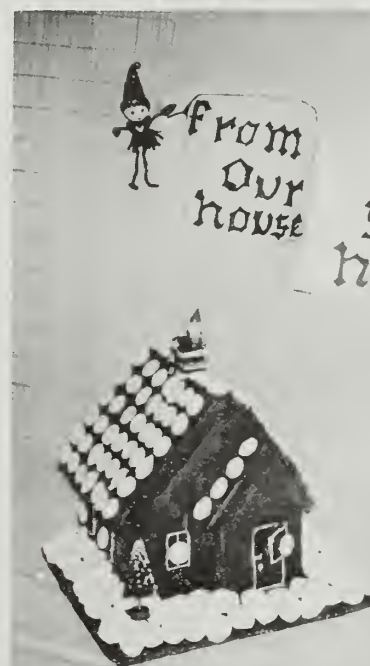 from
Our
house